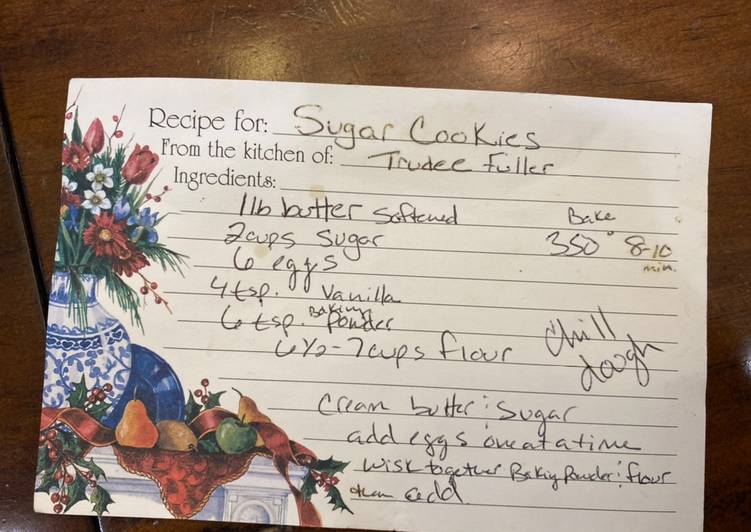 Recipe for: Sugar Cookies
From the kitchen of: Trudee Fuller
Ingredients:
1lb butter softened
Bake
2 cups sugar
350° 8-10
min.
6 eggs
4 tsp. Vanilla
6 tsp. Baking Powder
6 1/2 - 7 cups flour
Chill
dough
Cream butter & Sugar
add eggs one at a time
Wisk together Baking Powder & flour
then add